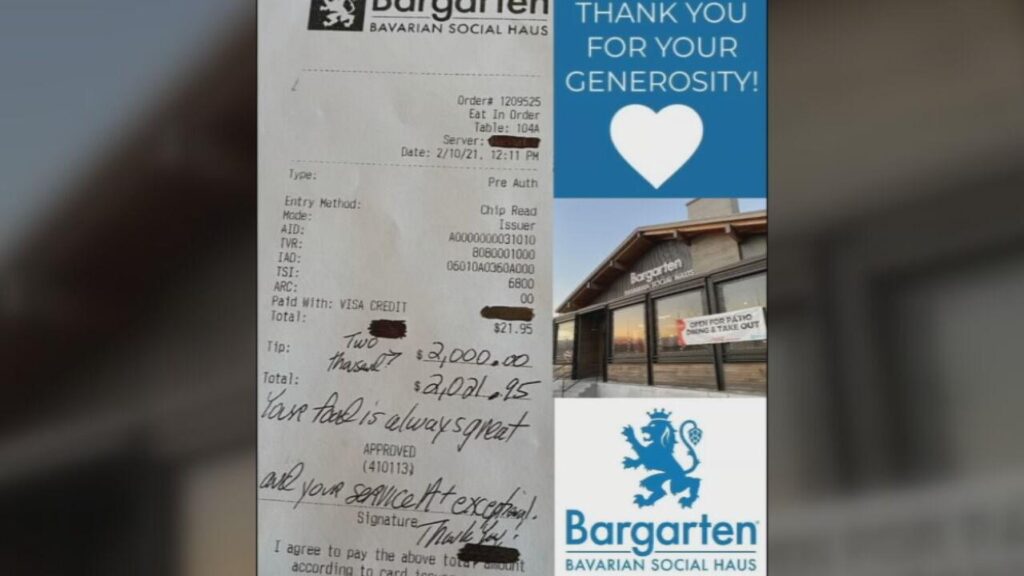 Bargarten
BAVARIAN SOCIAL HAUS
Order# 1209525
Eat In Order
Table: 104A
Server:
Date: 2/10/21, 12:11 PM
Type: Pre Auth
Entry Method: Chip Read
Mode: Issuer
AID: A0000000031010
TVR: 8080001000
IAD: 06010A0360A000
TSI: 6800
ARC: 00
Paid With: VISA CREDIT
Total: $21.95
Two
thousand
Tip: $2,000.00
Total: $2,021.95
Your food is always great
APPROVED
(410113)
and your service A+ exceptional.
Signature
Thank You!
I agree to pay the above total amount
according to card
THANK YOU
FOR YOUR
GENEROSITY!
Bargarten
SOCIAL HAUS
OPEN FOR PATIO
DINING & TAKE OUT
Bargarten
BAVARIAN SOCIAL HAUS